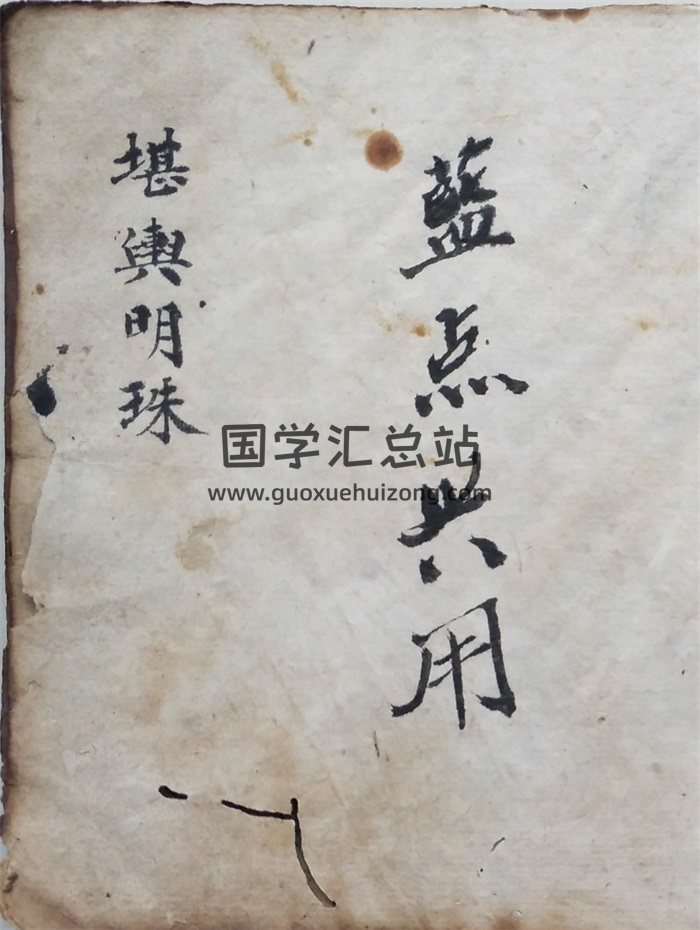 藍点共用
堪輿明珠
国学汇总站
www.guoxuehuizong.com